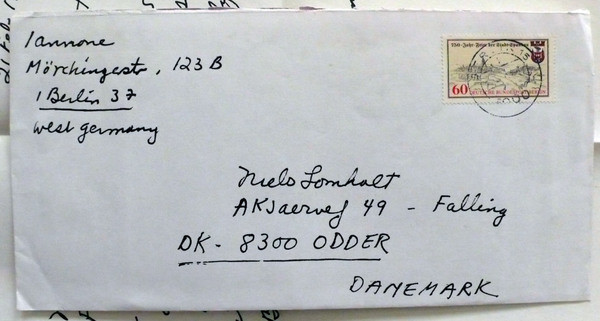 Iannone
Mörchingerstr, 123 B
1 Berlin 37
West Germany
60
Niels Lomholt
AKJaervej 49 - Falling
DK- 8300 ODDER
DANEMARK